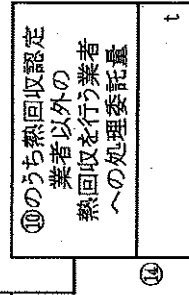 ⑩のうち熱回収認定
業者以外の
熱回収を行う業者
への処理委託量
⑭
t